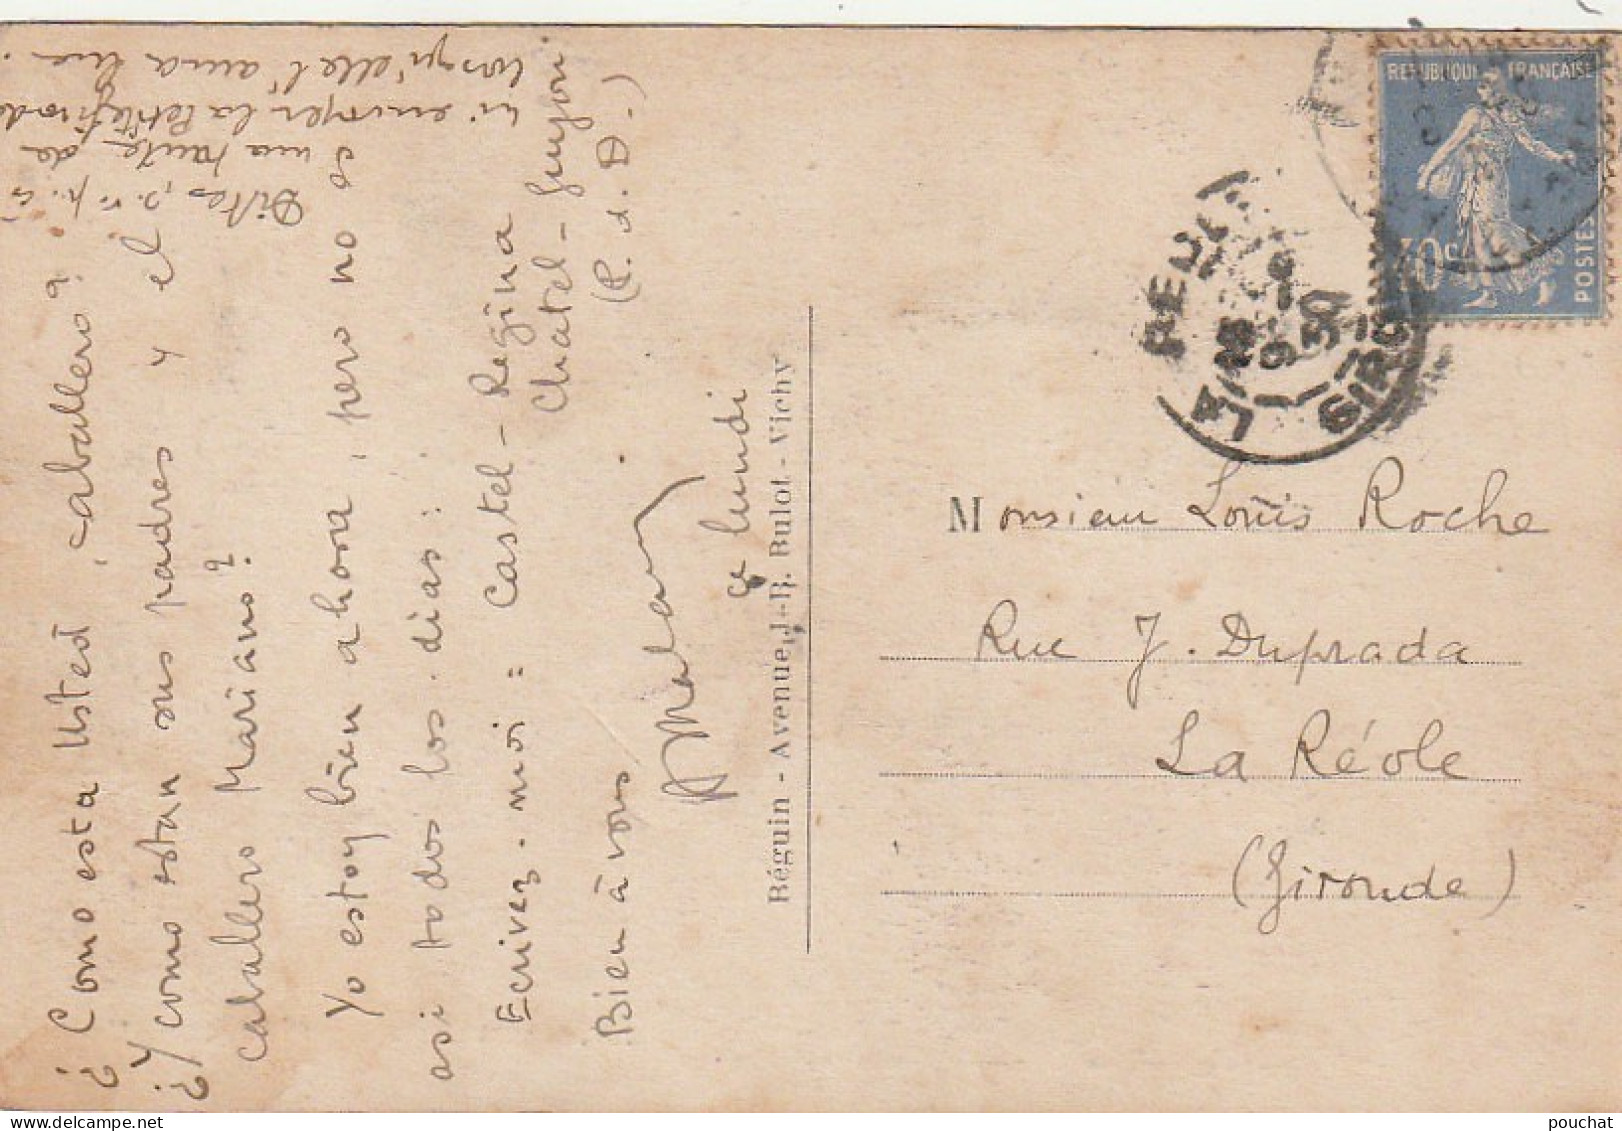 ¿Como esta Usted, caballero?
¿Y como estan sus padres y el
¿caballero Mariano?
Yo estoy bien ahora, pero no es
asi todos los dias:
Ecrivez-moi: Castel-Regina
Chatel-Guyon
(P. d. D.)
Bien à vous
ce lundi
Dites, s. v. p. à
ma tante de
m'envoyer la Petite Gironde
lorsqu'elle l'aura lue.
Béguin - Avenue J-B. Bulot - Vichy
REPUBLIQUE FRANÇAISE
POSTES
LA REOLE
GIRONDE
Monsieur Louis Roche
Rue J. Duprada
La Réole
(Gironde)
pouchat